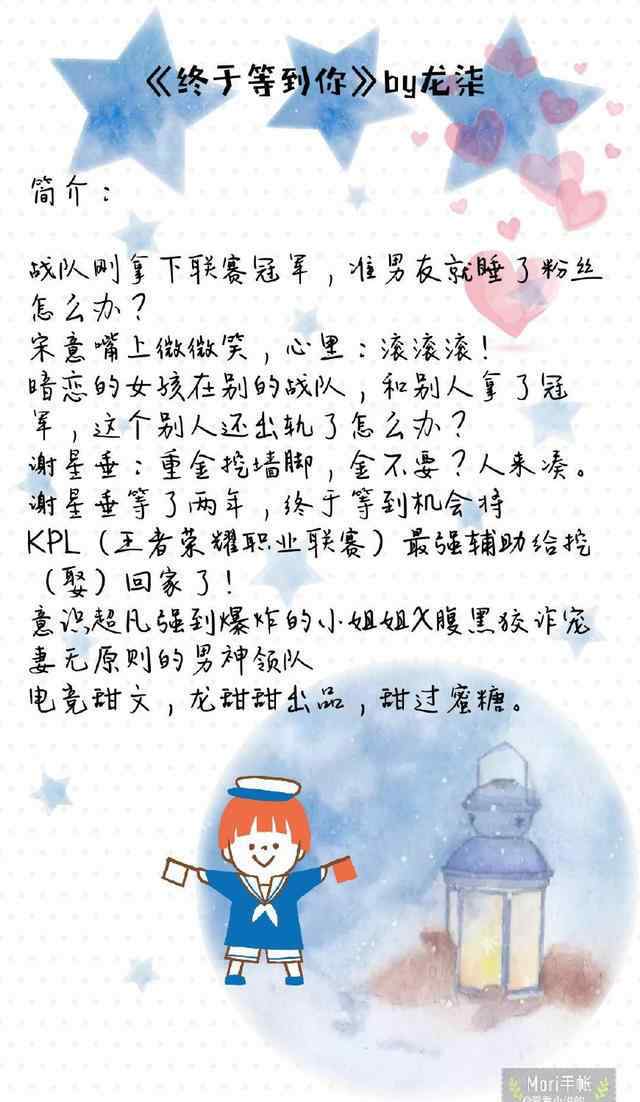 《终于等到你》by龙柒
简介：
战队刚拿下联赛冠军，准男友就睡了粉丝
怎么办？
宋意嘴上微微笑，心里：滚滚滚！
暗恋的女孩在别的战队，和别人拿了冠
军，这个别人还出轨了怎么办？
谢星垂：重金挖墙脚，金不要？人来凑。
谢星垂等了两年，终于等到机会将
KPL（王者荣耀职业联赛）最强辅助给挖
（娶）回家了！
意识超凡强到爆炸的小姐姐X腹黑狡诈宠
妻无原则的男神领队
电竞甜文，龙甜甜出品，甜过蜜糖。
Mori手帐